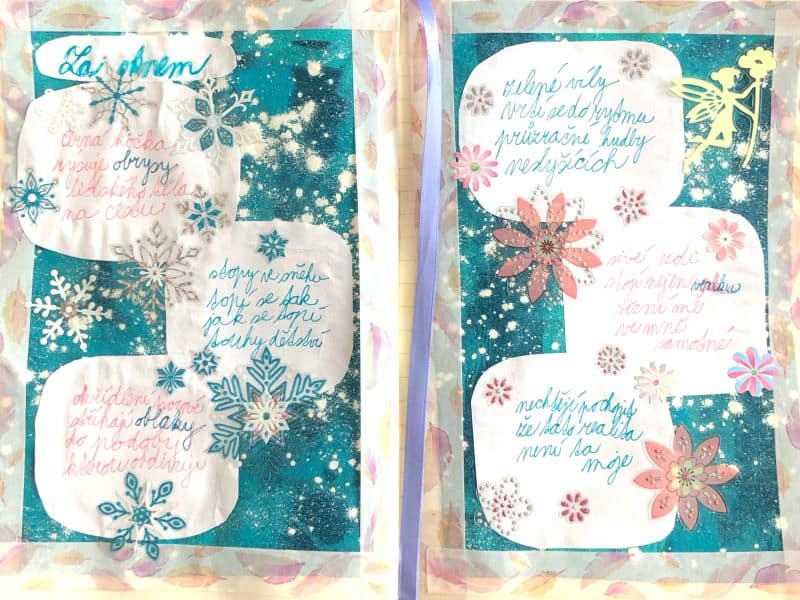 Za oknem
černá kočka
rysuje obrysy
lidského těla
na
stopy ve sněhu
topí se tak
jak se topí
touhy dětství
okřídlení tvorové
stříhají oblaky
do podoby
kterou obdivuji
zelené víly
vrší se do rytmu
průzračné hudby
neslyšících
sivé zdi
stojí nejen venku
vězní mě
ve mně
samotné
nechtějí pochopit
že tato realita
není ta
moje